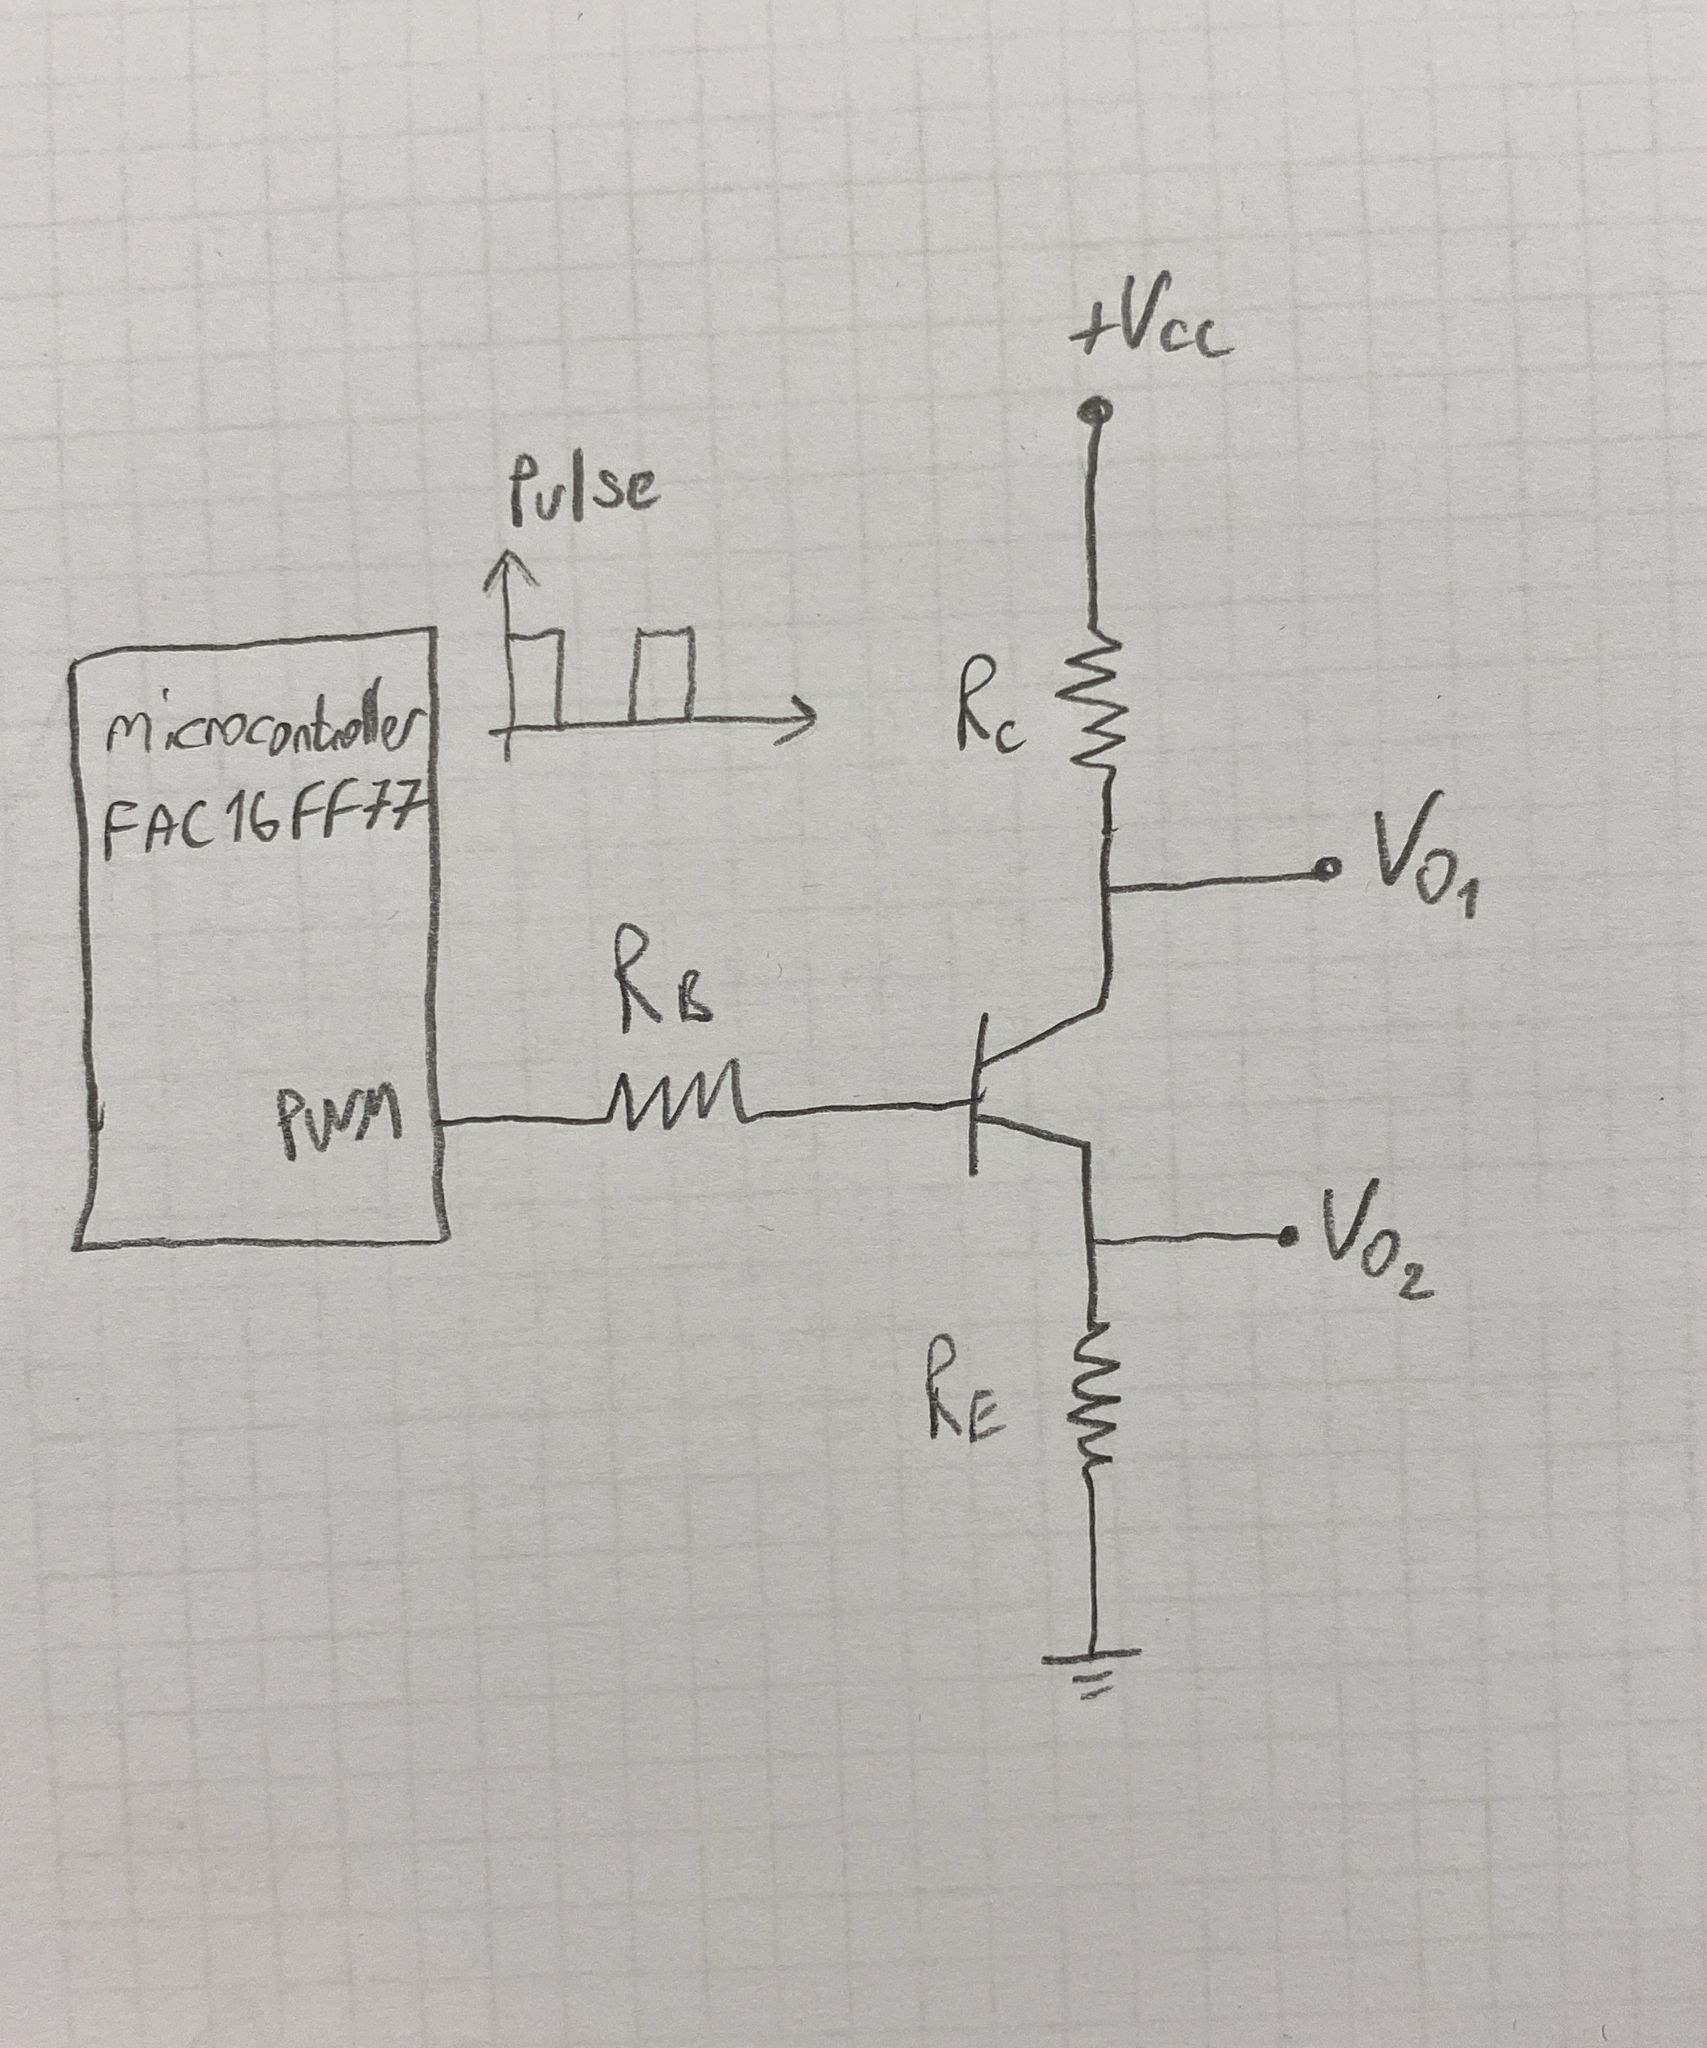 +Vcc
Pulse
Microcontroller
FAC16FF77
RC
VO1
RB
PWM
VO2
RE